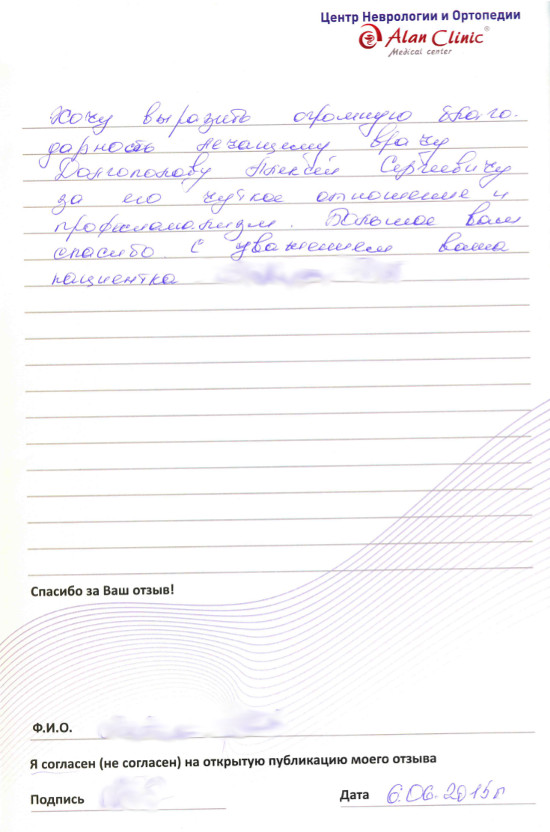 Центр Неврологии и Ортопедии
Alan Clinic®
Medical center
Хочу выразить огромную благо-
дарность лечащему врачу
Долгополову Алексею Сергеевичу
за его чуткое отношение и
профисланализм. Большое вам
спасибо. С уважением ваша
пациентка
Спасибо за Ваш отзыв!
Ф.И.О.
Я согласен (не согласен) на открытую публикацию моего отзыва
Подпись
Дата 6.06.2015г